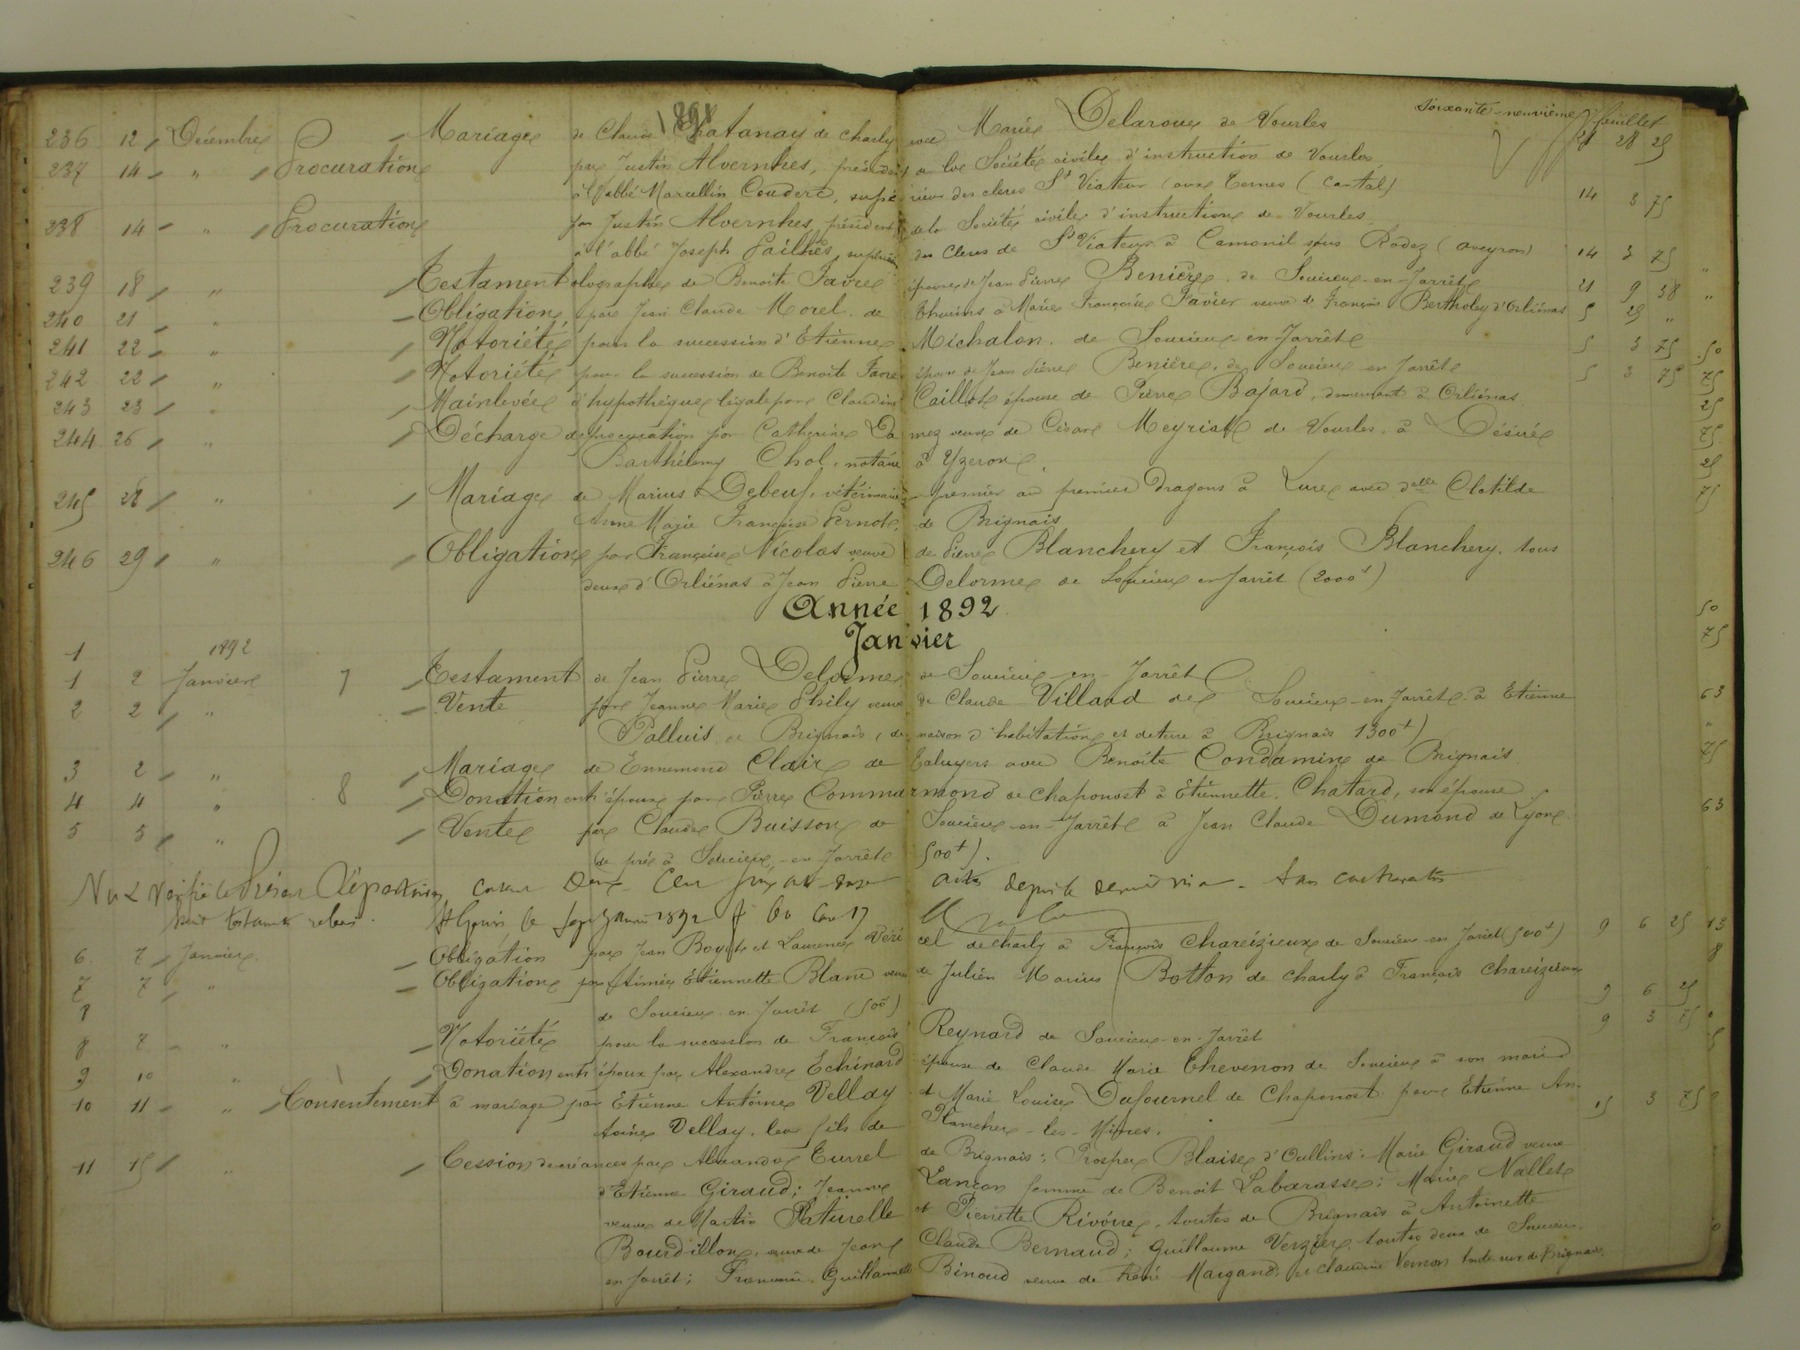 1891
Soixante-neuvième feuillet
236 12 Décembre Mariage de Claude Chatanay de Charly avec Marie Delaroue de Vourles 21 28 25
237 14 " Procuration par Justin Alvernhes, président de la Société civile d'instruction de Vourles,
à l'abbé Marcellin Coudert, supérieur des clercs St Viateur aux Ternes (Cantal) 14 3 75
238 14 " Procuration par Justin Alvernhes, président de la Société civile d'instruction de Vourles
à l'abbé Joseph Pailhès, supérieur des Clercs de St Viateur à Camonil sous Rodez (Aveyron) 14 3 75 "
239 18 " Testament olographe de Benoite Favre épouse de Jean Pierre Benière de Soucieu-en-Jarrêt 21 9 38 "
240 21 " Obligation par Jean Claude Morel de Thurins à Marie Françoise Favier veuve de François Bertholey d'Orliénas 5 25 "
241 22 " Notoriété pour la succession d'Etienne Michalon de Soucieu-en-Jarrêt 5 3 75 50
242 22 " Notoriété pour la succession de Benoite Favre épouse de Jean Pierre Benière, de Soucieu en Jarrêt 5 3 75 75
243 23 " Mainlevée d'hypothèque légale par Claudine Caillot épouse de Pierre Bajard, demeurant à Orliénas 25
244 26 " Décharge de procuration par Catherine Damez veuve de César Meyriat de Vourles à Désiré 75
Barthélemy Chol, notaire à Yzeron. 25
245 28 " Mariage de Marius Debeuf, vétérinaire premier au premier Dragons à Lure avec Delle Clotilde 75
Anne Marie Françoise Pernot, de Brignais
246 29 " Obligation par Françoise Nicolas veuve de Pierre Blanchery et François Blanchery, tous
deux d'Orliénas à Jean Pierre Delorme de Soucieu en Jarrêt (2000f)
Année 1892 50
Janvier 75
1 1892
1 2 Janvier 7 Testament de Jean Pierre Delorme de Soucieu-en-Jarrêt
2 2 " Vente par Jeanne Marie Phily veuve de Claude Villard de Soucieu-en-Jarrêt à Etienne 63
Palluis de Brignais, de maison d'habitation et de terre à Brignais 1300f) "
3 2 " Mariage de Ennemond Clair de Taluyers avec Benoite Condamine de Brignais 75
4 4 " 8 Donation entre époux par Pierre Commarmond de Chaponost à Etiennette Chatard, son épouse
5 5 " Vente par Claude Buisson de Soucieu-en-Jarrêt à Jean Claude Dumond de Lyon 63
de pré à Soucieu-en-Jarrêt 500f).
Vu & Vérifié le présent Répertoire, actes depuis le dernier visa. Sans contravention
St Genis le sept janvier 1892
6 7 Janvier Obligation par Jean et Laurence de Charly à François Chareizieux de Soucieu en Jarrêt (500f) 9 6 25 13
7 7 " Obligation par Aimée Etiennette Blanc veuve de Julien Marius Botton de Charly à François Chareizieux 8
8 de Soucieu en Jarrêt (500f) 9 6 25
8 7 " Notoriété pour la succession de François Reynard de Soucieu-en-Jarrêt 9 3 75
9 10 " Donation entre époux par Alexandre Echinard épouse de Claude Marie Thevenon de Soucieu à son mari
10 11 " Consentement à mariage par Etienne Antoine Vellay et Marie Louise Dufournel de Chaponost pour Etienne An-
toine Vellay, leur fils de Plancher-les-Mines. 15 3 75
11 15 " Cession de créances par Alexandre Turrel de Brignais; Prosper Blaise d'Oullins; Marie Giraud veuve
d'Etienne Giraud; Jeanne Lançon femme de Benoit Labarasse; Marie Nallet
veuve de Martin Paturelle et Pierrette Rivoire, toutes de Brignais à Antoinette
Bourdillon, veuve de Jean Claude Bernard; Guillaume Verzier, toutes deux de Soucieu
en Jarrêt; Françoise Guillaumette Binoud veuve de René Margand, et Claudine Vernon de Brignais.